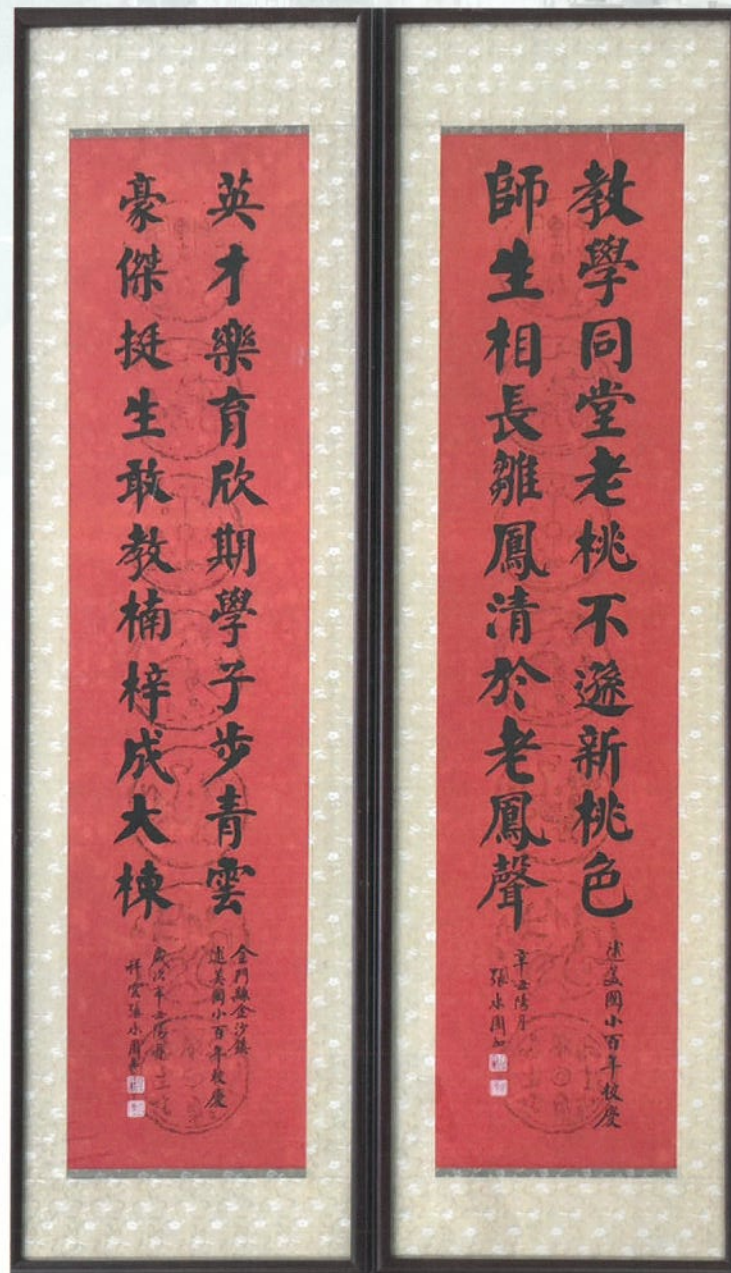 教學同堂老桃不遜新桃色
師生相長雛鳳清於老鳳聲
述美國小百年校慶
辛丑陽月
張水團
英才樂育欣期學子步青雲
豪傑挺生敢教楠梓成大棟
金門縣金沙鎮
述美國小百年校慶
歲次辛丑陽月
祥雲張水團